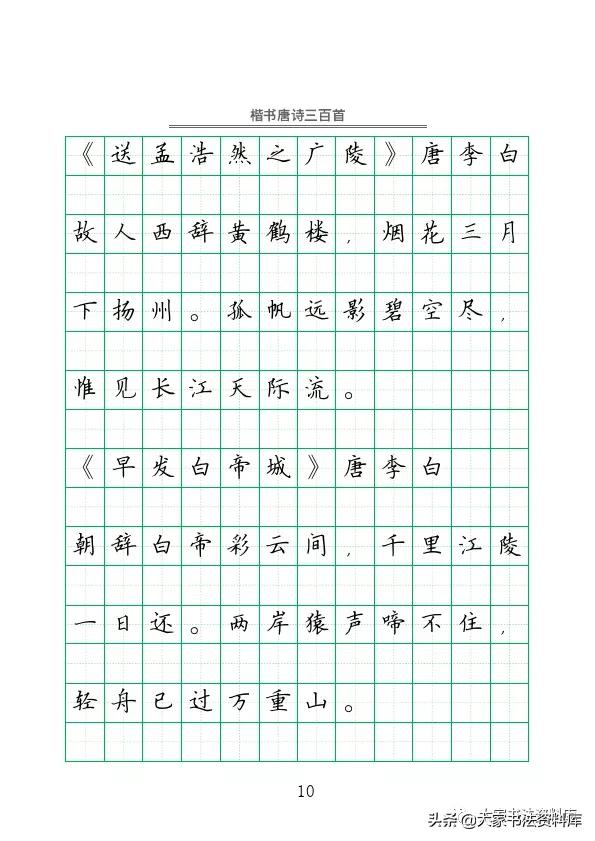 楷书唐诗三百首
《送孟浩然之广陵》唐李白
故人西辞黄鹤楼，烟花三月
下扬州。孤帆远影碧空尽，
惟见长江天际流。
《早发白帝城》唐李白
朝辞白帝彩云间，千里江陵
一日还。两岸猿声啼不住，
轻舟已过万重山。
10
头条@大家书法资料库